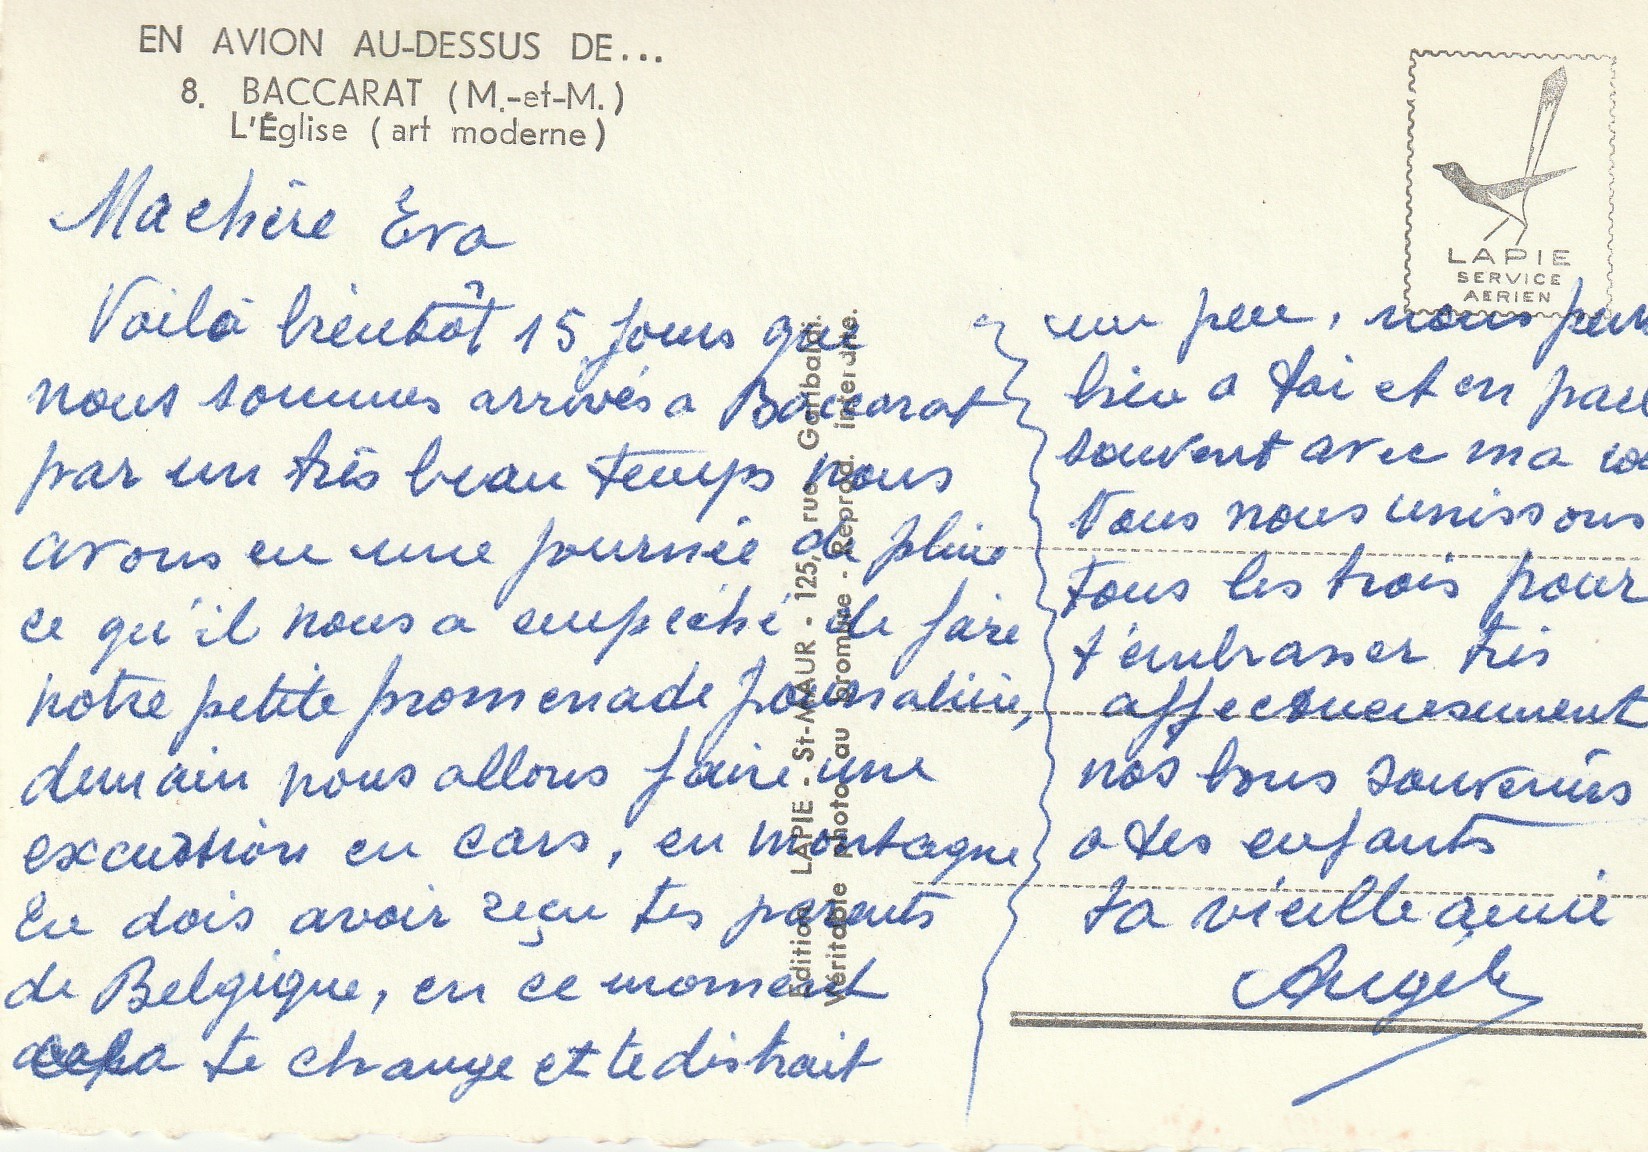 EN AVION AU-DESSUS DE...
8. BACCARAT (M.-et-M.)
L'Église (art moderne)
LAPIE
SERVICE
AERIEN
Ma chère Éva
Voilà bientôt 15 jours que
nous sommes arrivés a Baccarat
par un très beau temps nous
avons eu une journée de pluie
ce qu'il nous a empêché de faire
notre petite promenade journalière,
demain nous allons faire une
excursion en cars, en montagne
tu dois avoir reçu tes parents
de Belgique, en ce moment
cela te change et te distrait
un peu, nous
bien a toi et en
souvent avec ma
Nous nous unissons
tous les trois pour
t'embrasser très
affectueusement
nos bons souvenirs
a tes enfants
ta vieille amie
Angèle
Edition LAPIE - St-MAUR - 125, rue Garibaldi.
Véritable photo au bromure - Reprod. interdite.